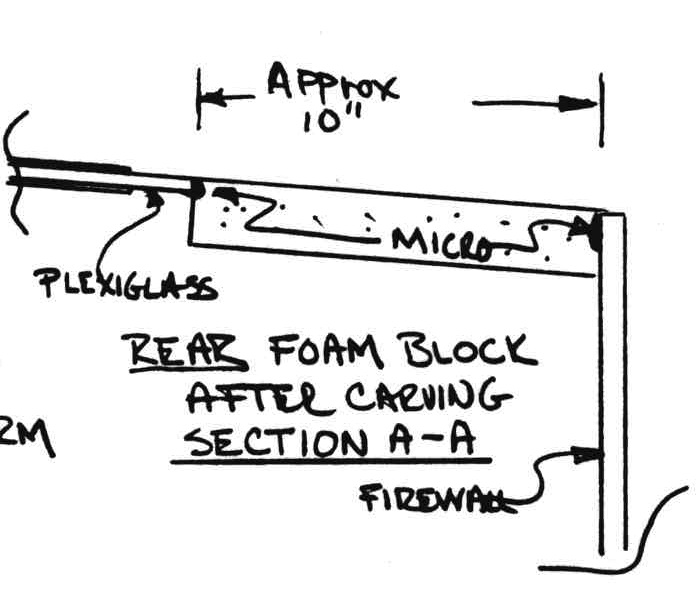 Approx
10"
MICRO
PLEXIGLASS
REAR FOAM BLOCK
AFTER CARVING
RM
SECTION A-A
FIREWALL